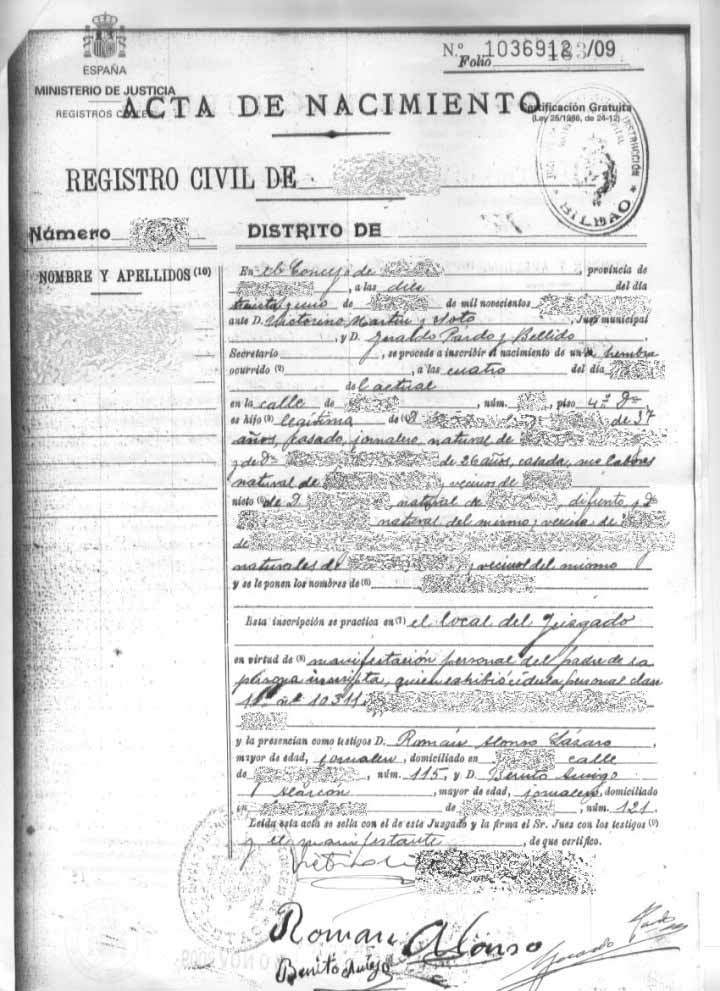 ESPAÑA
MINISTERIO DE JUSTICIA
REGISTROS
Nº 1036912 /09
Folio 183
ACTA DE NACIMIENTO
Certificación Gratuita
(Ley 25/1986, de 24-12)
REGISTRO CIVIL DE
BILBAO
Número
DISTRITO DE
NOMBRE Y APELLIDOS (10)
En el Concejo de , provincia de
, a las diez del día
treinta y uno de de mil novecientos
ante D. Victorino Martin y Soto, Juez municipal
, y D. Geraldo Pardo y Bellido
Secretario , se procede a inscribir el nacimiento de una hembra
ocurrido (2) , a las cuatro del día
del actual
en la calle de , núm. , piso 4.º
es hijo (3) legítima de de 37
años, casado, jornalero natural de
y de Dª de 26 años, casada, sus labores
natural de y vecinos de
nieto de D. natural de , difunto y Dª
natural del mismo y vecina de
de
naturales de y vecinos del mismo
y se le ponen los nombres de (6)
Esta inscripción se practica en (7) el local del Juzgado
en virtud de (8) manifestación personal del padre de la
inscripta, quien exhibió cédula personal clase
11ª nº 10311
y la presencian como testigos D. Román Alonso Lázaro
mayor de edad, jornalero, domiciliado en calle
de , núm. 115, y D. Benito
Alarcón , mayor de edad, jornalero, domiciliado
en de , núm. 121.
Leída esta acta se sella con el de este Juzgado y la firma el Sr. Juez con los testigos (9)
y el manifestante , de que certifico.
Roman Alonso
Benito
Gerardo Pardo